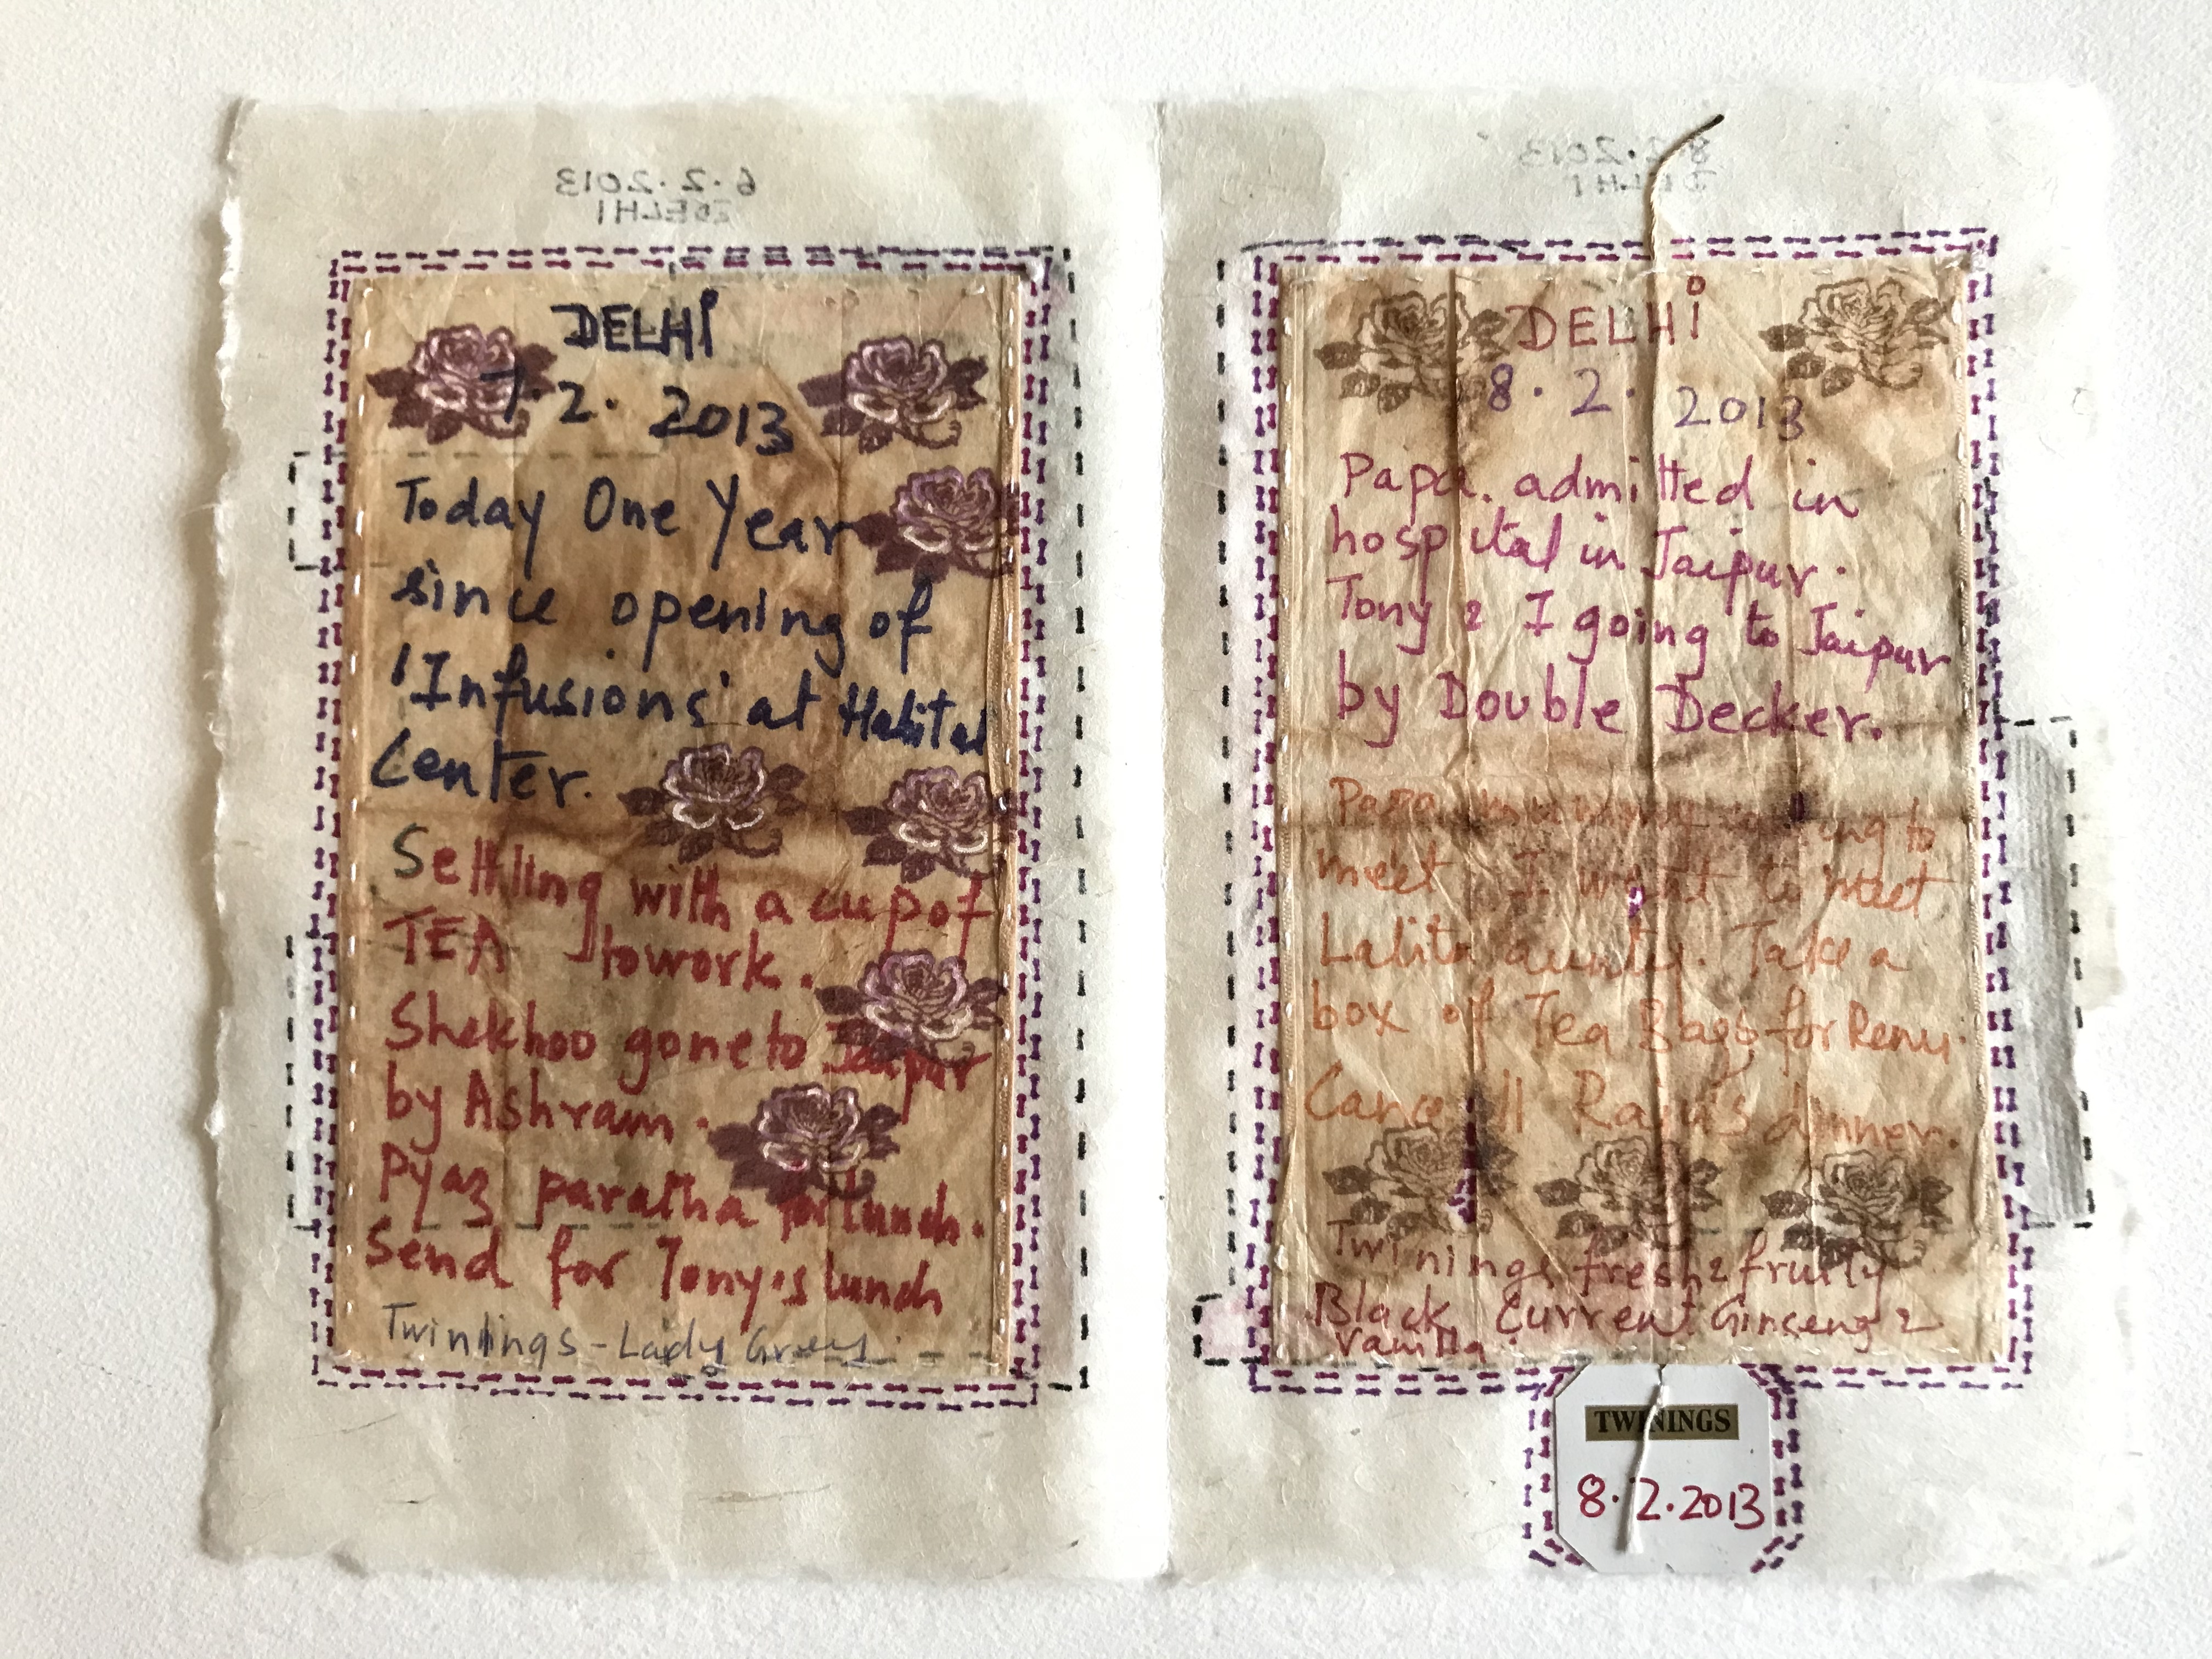 6.2.2013
DELHI
DELHi
7.2. 2013
Today One Year
since opening of
'Infusions' at Habitat
Center.
Settling with a cup of
TEA to work.
Shekhoo gone to Jaipur
by Ashram.
Pyaz paratha for lunch.
Send for Tony's lunch
Twinings - Lady Grey.
8.2.2013
DELHI
DELHi
8.2.2013
Papa. admitted in
hospital in Jaipur.
Tony & I going to Jaipur
by Double Decker.
Papa to
meet. I want to meet
Lalita aunty. Take a
box of Tea Bags for Renu.
Cancell Raju's dinner.
Twinings fresh & fruity
Black Current Ginseng &
Vanilla.
TWININGS
8.2.2013